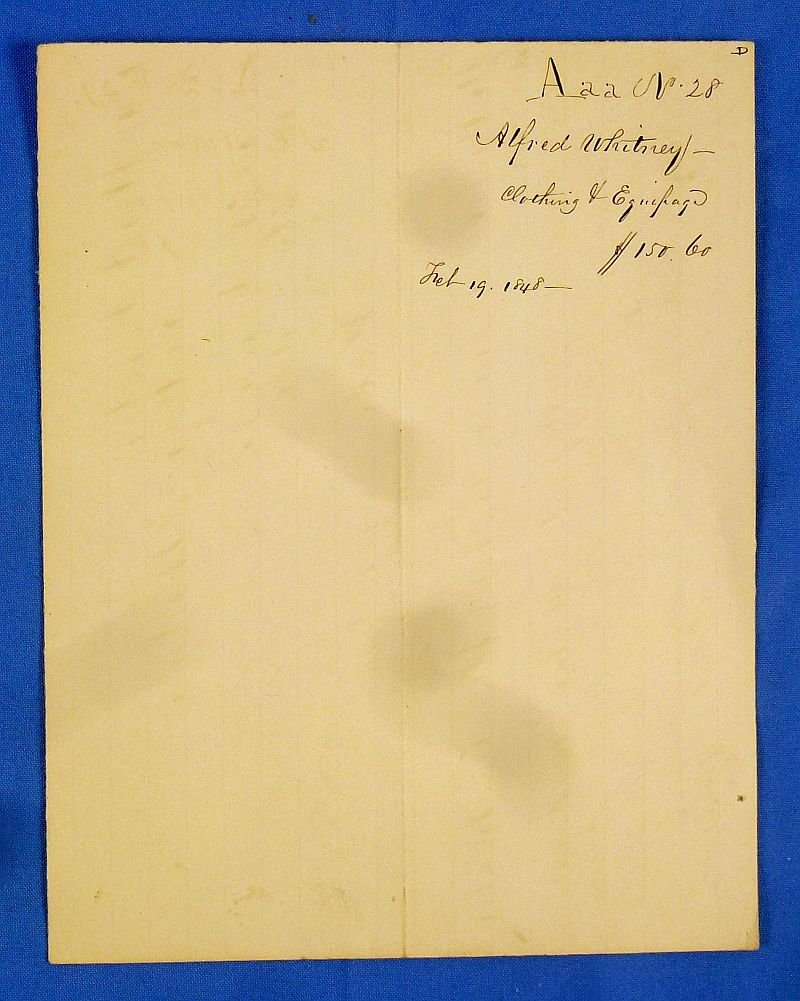 D
Aaa No. 28
Alfred Whitney –
Clothing & Equipage
$150.60
Feb 19. 1848 —